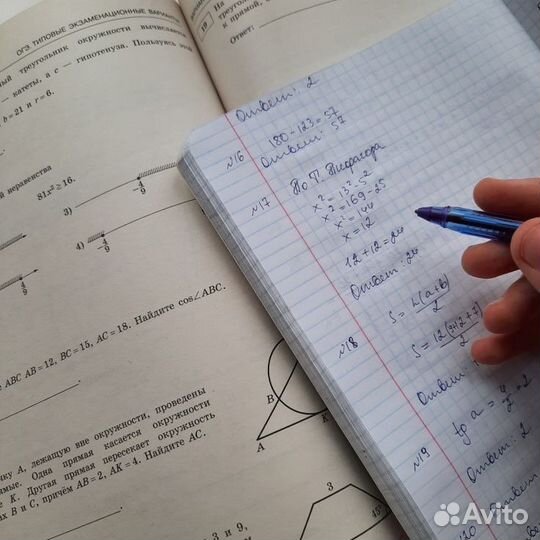 ОГЭ ТИПОВЫЕ ЭКЗАМЕНАЦИОННЫЕ ВАРИАНТЫ
треугольник окружности вычисляется
— катеты, а c — гипотенуза. Пользуясь этой
b=21 и r=6.
неравенства
81x² ≥ 16.
3)
-4/9
4)
-4/9
4/9
ABC AB=12, BC=15, AC=18. Найдите cos∠ABC.
чку A, лежащую вне окружности, проведены
ямые. Одна прямая касается окружности
K. Другая прямая пересекает окружность
ах B и C, причём AB=2, AK=4. Найдите AC.
B
A
K
3 и 9,
3
45°
19
На
треуголь
к прямой,
Ответ:
Ответ: 2
№16
180-123=57
Ответ: 57
№17
По т. Пифагора
x²=13²-5²
x²=169-25
x²=144
x=12
12+12=24
Ответ: 24
№18
S=h(a+b)/2
Ответ:
№19
Ответ: 2
Avito